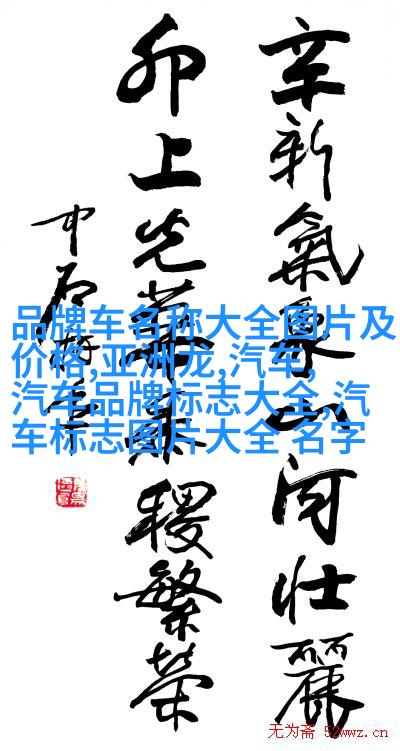 辛新氣象山河壯麗
卯上光華稷繁榮
中石
品牌车名称大全图片及
价格,亚洲龙,汽车,
汽车品牌标志大全 汽
车标志图片大全 名字
无为斋 52wwz.cn